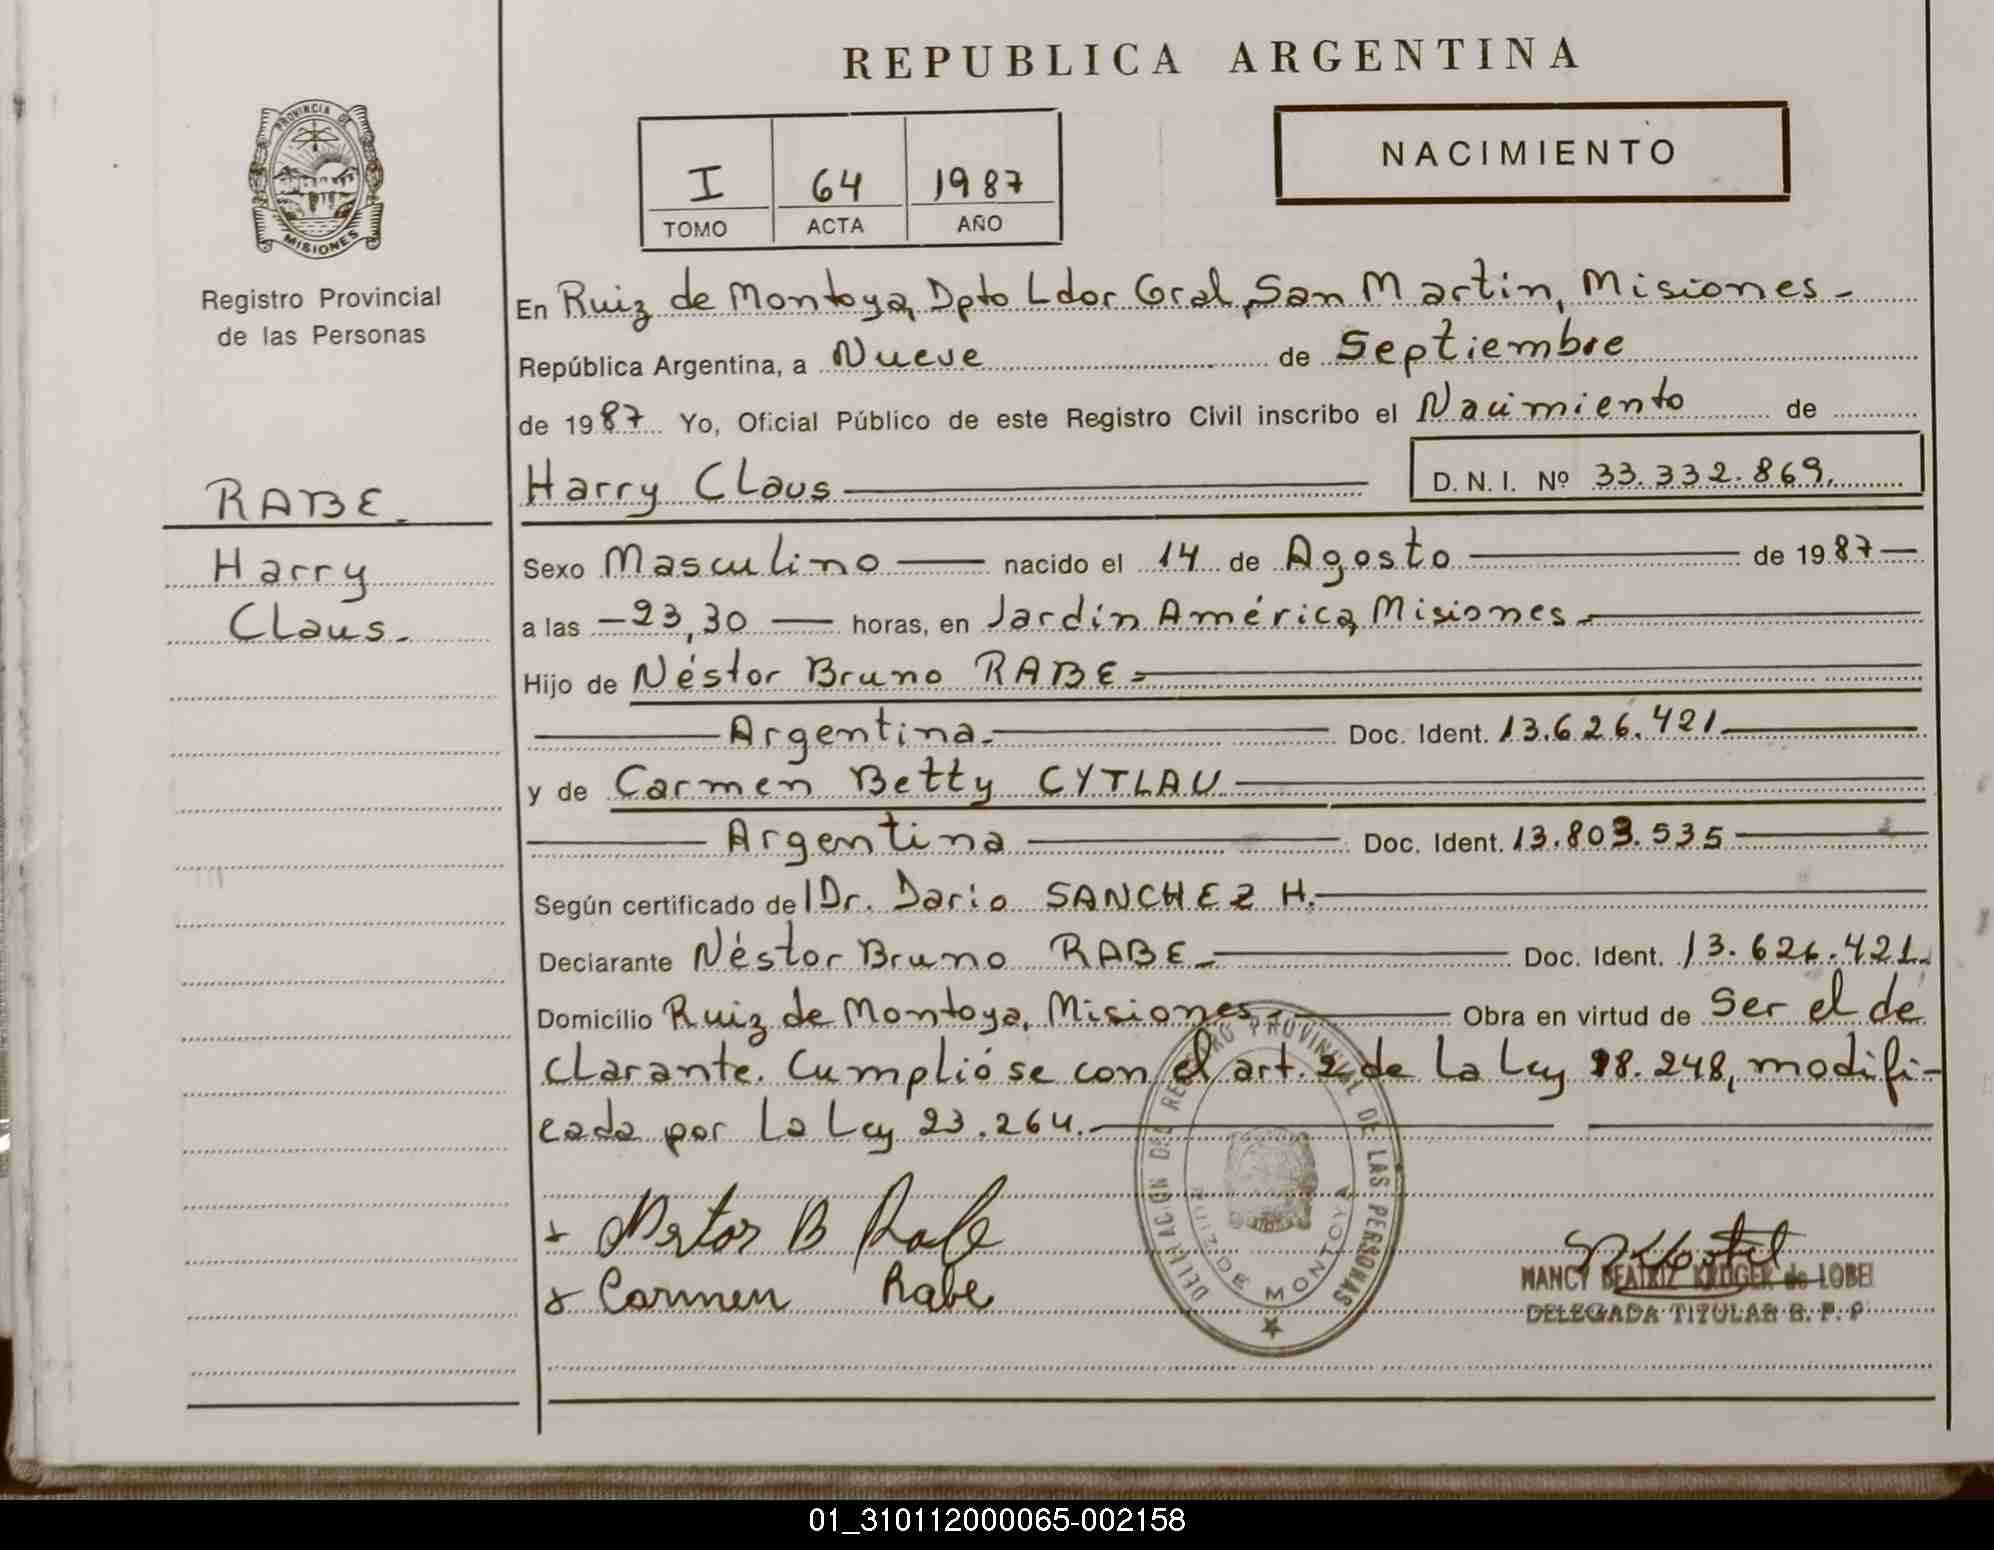 REPUBLICA ARGENTINA
PROVINCIA DE
MISIONES
Registro Provincial
de las Personas
I 64 1987
TOMO ACTA AÑO
NACIMIENTO
En Ruiz de Montoya, Dpto Ldor Gral, San Martín, Misiones -
República Argentina, a Nueve de Septiembre
de 1987 Yo, Oficial Público de este Registro Civil inscribo el Nacimiento de
RABE -
Harry Claus
D. N. I. Nº 33.332.869.
Harry
Claus -
Sexo Masculino nacido el 14 de Agosto de 1987
a las - 23,30 horas, en Jardín América, Misiones -
Hijo de Néstor Bruno RABE -
Argentina - Doc. Ident. 13.626.421
y de Carmen Betty CYTLAU
Argentina Doc. Ident. 13.803.535
Según certificado del Dr. Dario SANCHEZ H.
Declarante Néstor Bruno RABE - Doc. Ident. 13.626.421.
Domicilio Ruiz de Montoya, Misiones - Obra en virtud de Ser el de
clarante. Cumplióse con el art. 2 de la Ley 18.248, modifi-
cada por la Ley 23.264.
x Nestor B Rabe
x Carmen Rabe
DELEGACION DEL REGISTRO PROVINCIAL DE LAS PERSONAS
RUIZ DE MONTOYA
NANCY BEATRIZ KRUGER de LOBEL
DELEGADA TITULAR R. P. P
01_310112000065-002158